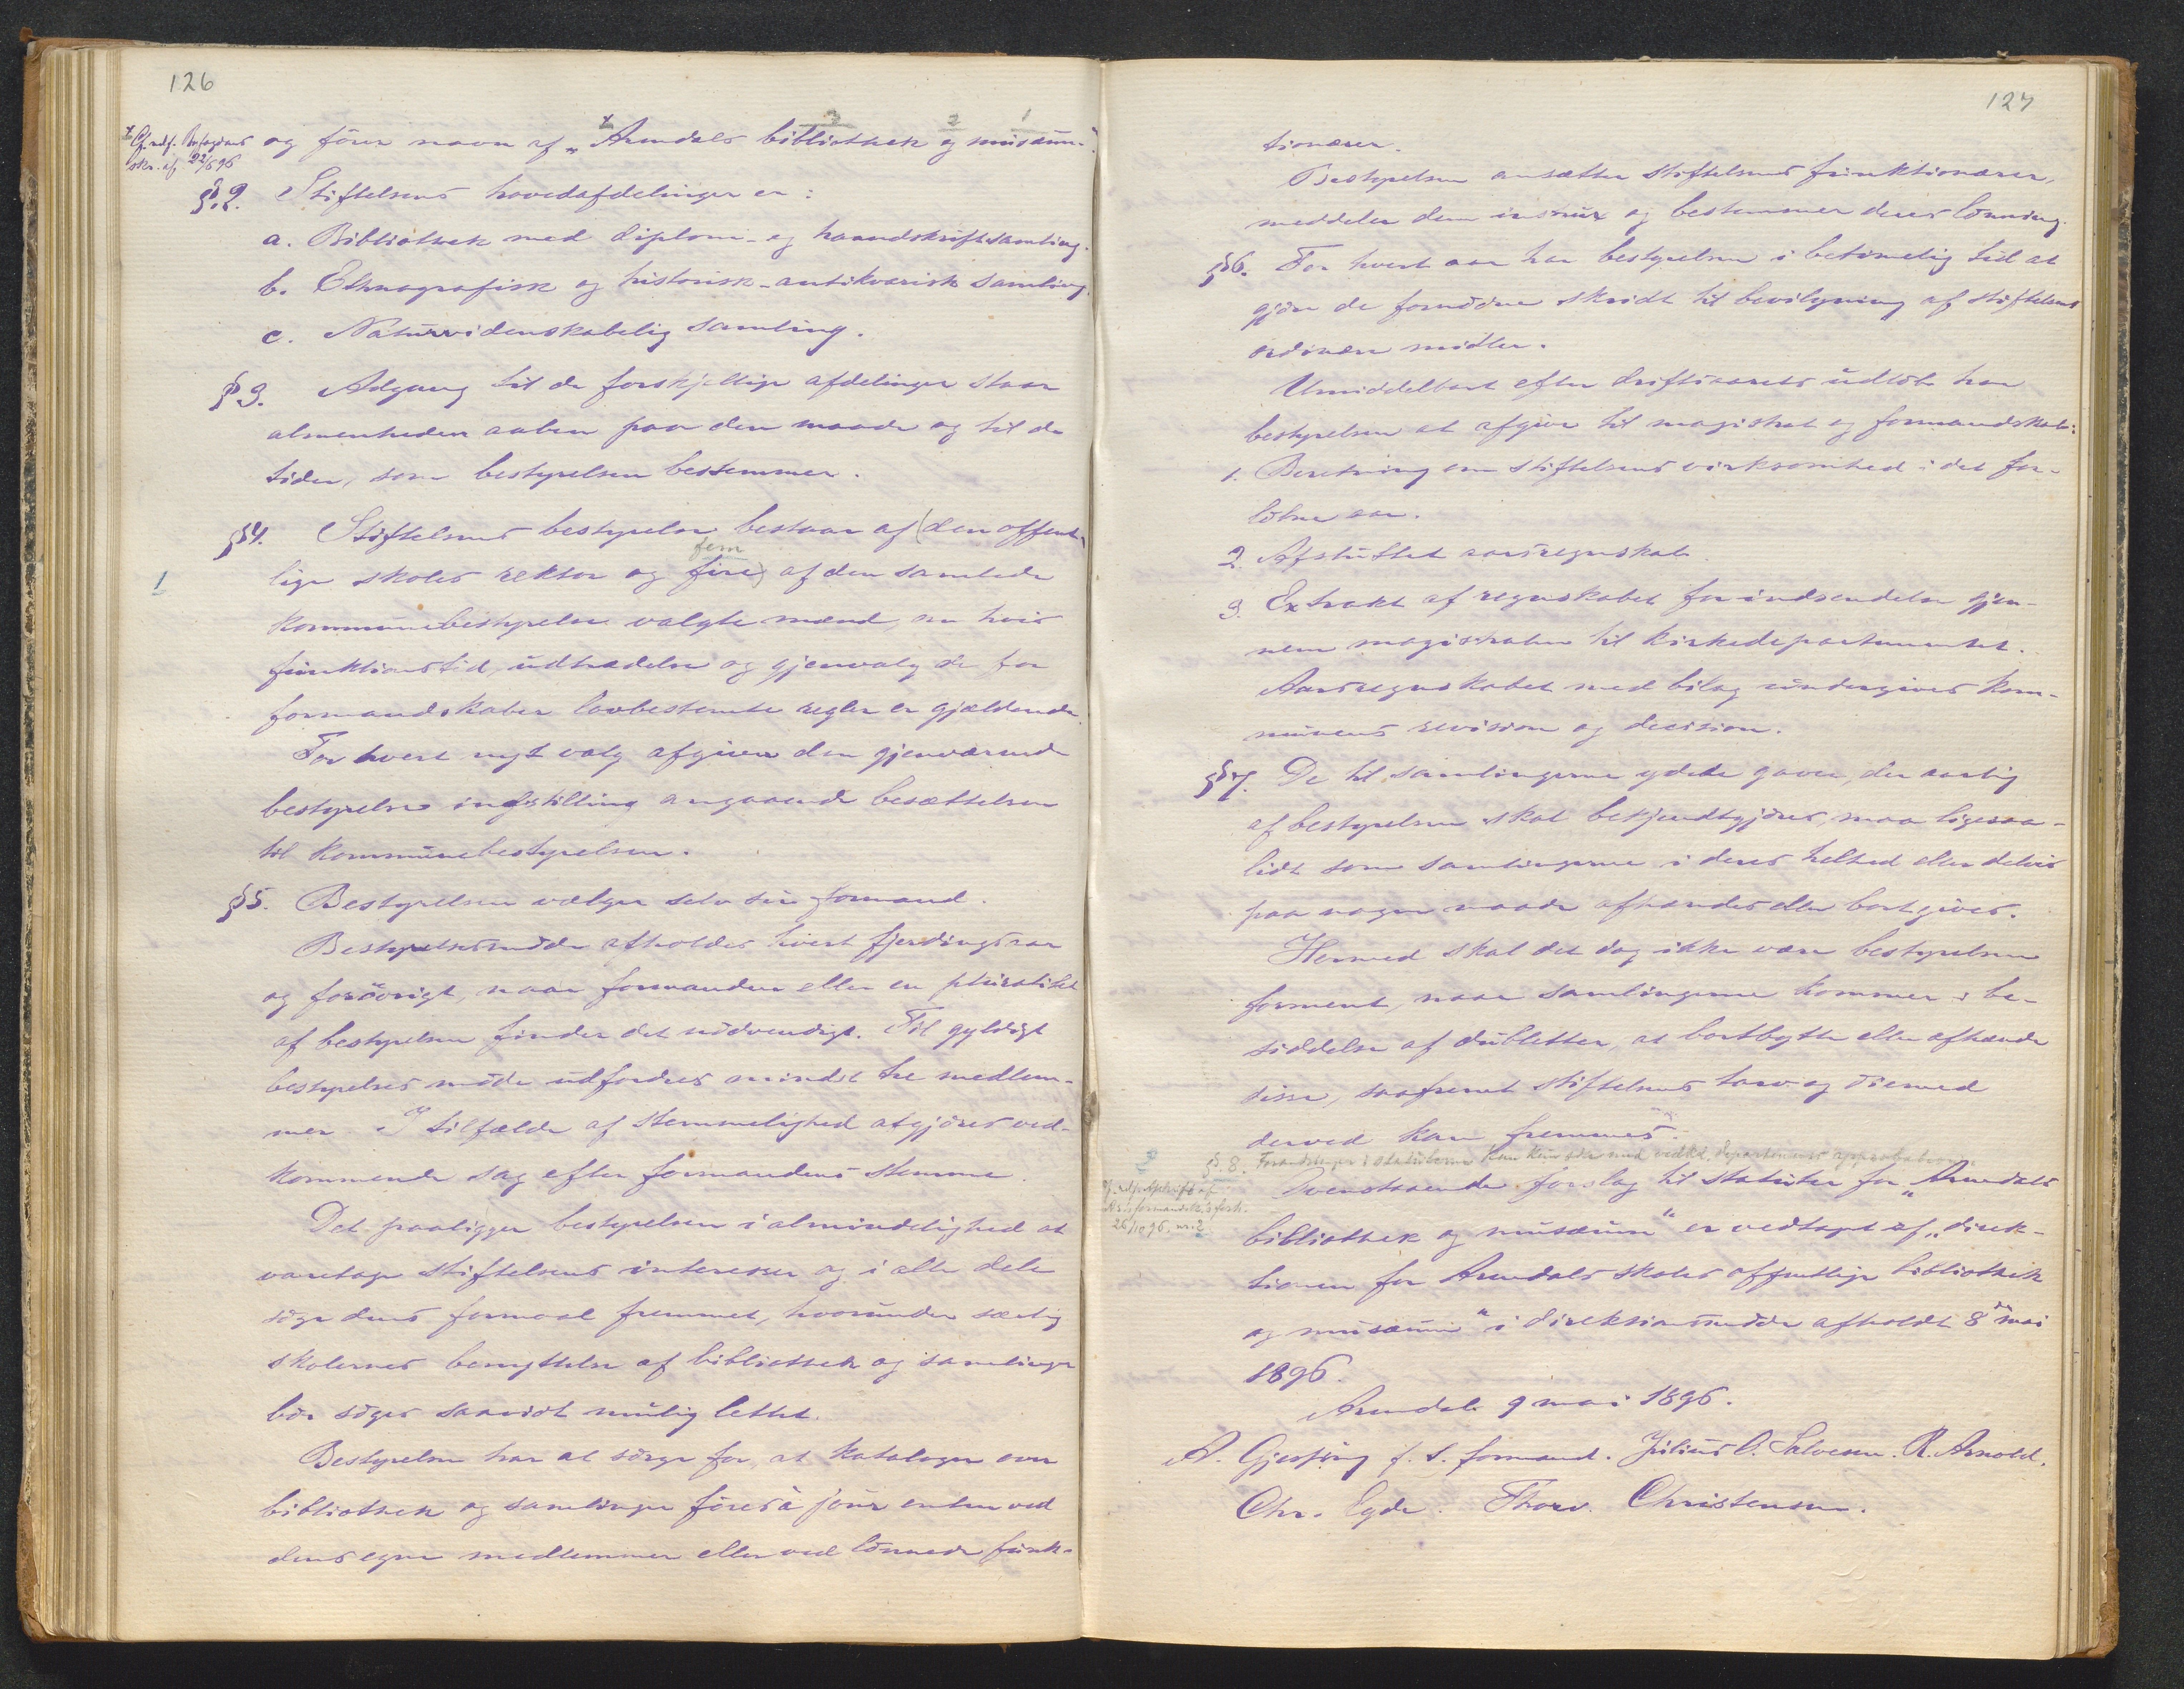 126
3 2 1
x og fører navn af „Arendals bibliothek og musæum."
skr. af 22/5 96
§ 2. Stiftelsens hovedafdelinger er:
a. Bibliothek med diplom- og haandskriftsamling.
b. Ethnografisk og historisk-antikvarisk samling.
c. Naturvidenskabelig samling.
§ 3. Adgang til de forskjellige afdelinger staar
almenheden aaben paa den maade og til de
tider, som bestyrelsen bestemmer.
§ 4. Stiftelsens bestyrelse bestaar af (den offent-
fem
1 lige skoles rektor og fire) af den samlede
kommunebestyrelse valgte mænd, om hvis
funktionstid, udtrædelse og gjenvalg de for
formandskaber lovbestemte regler er gjældende.
For hvert nyt valg afgiver den gjenværende
bestyrelse indstilling angaaende besættelsen
til kommunebestyrelsen.
§ 5. Bestyrelsen vælger selv sin formand.
Bestyrelsesmøde afholdes hvert fjerdingsaar
og forøvrigt, naar formanden eller en pluralitet
af bestyrelsen finder det nødvendigt. Til gyldigt
bestyrelses møde udfordres mindst tre medlem-
mer. I tilfælde af stemmelighed afgjøres ved-
kommende sag efter formandens stemme.
Det paaligger bestyrelsen i almindelighed at
varetage stiftelsens interesser og i alle dele
søge dens formaal fremmet, hvorunder særlig
skolernes benyttelse af bibliothek og samlinger
bør søges saavidt mulig lettet.
Bestyrelsen har at sørge for, at kataloger over
bibliothek og samlinger føres à jour enten ved
dens egne medlemmer eller ved lønnede funk-
127
tionærer.
Bestyrelsen ansætter stiftelsens funktionærer,
meddeler dem instrux og bestemmer deres lønning.
§ 6. For hvert aar har bestyrelsen i betimelig tid at
gjøre de fornødne skridt til bevilgning af stiftelsens
ordinære midler.
Umiddelbart efter driftsaarets udløb har
bestyrelsen at afgive til magistrat og formandskab:
1. Beretning om stiftelsens virksomhed i det for-
løbne aar.
2. Afsluttet aarsregnskab.
3. Extrakt af regnskabet for indsendelse gjen-
nem magistraten til kirkedepartementet.
Aarsregnskabet med bilag undergives kom-
munens revision og decision.
§ 7. De til samlingerne ydede gaver, der aarlig
af bestyrelsen skal bekjendtgjøres, maa ligesaa-
lidt som samlingerne i deres helhed eller delvis
paa nogen maade afhændes eller bortgives.
Hermed skal det dog ikke være bestyrelsen
forment, naar samlingerne kommer i be-
siddelse af dubletter, at bortbytte eller afhænde
disse, saafremt stiftelsens tarv og øiemed
derved kan fremmes.
2 § 8. Forandringer i statuterne kan kun ske med vedk. departements approbation.
26/10 96. nr. 2
Ovenstaaende forslag til statuter for „Arendals
bibliothek og musæum" er vedtaget af „direk-
tionen for Arendals skoles offentlige bibliothek
og musæum" i direktionsmøde afholdt 8de mai
1896.
Arendal 9 mai 1896.
A. Gjessing f. t. formand. Julius O. Salvesen. R. Arnold.
Chr. Egde. Thorv. Christensen.